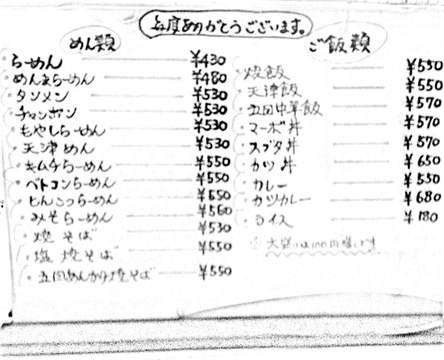 毎度ありがとうございます。
めん類
らーめん ¥430
めんまらーめん ¥480
タンメン ¥530
チャンポン ¥530
もやしらーめん ¥530
天津めん ¥530
キムチらーめん ¥550
ベトコンらーめん ¥550
とんこつらーめん ¥550
みそらーめん ¥560
焼そば ¥530
塩焼そば ¥550
五目あんかけ焼そば ¥550
ご飯類
焼飯 ¥550
天津飯 ¥550
五目中華飯 ¥570
マーボ丼 ¥570
スブタ丼 ¥570
カツ丼 ¥650
カレー ¥550
カツカレー ¥680
ライス ¥180
大盛りは100円増です